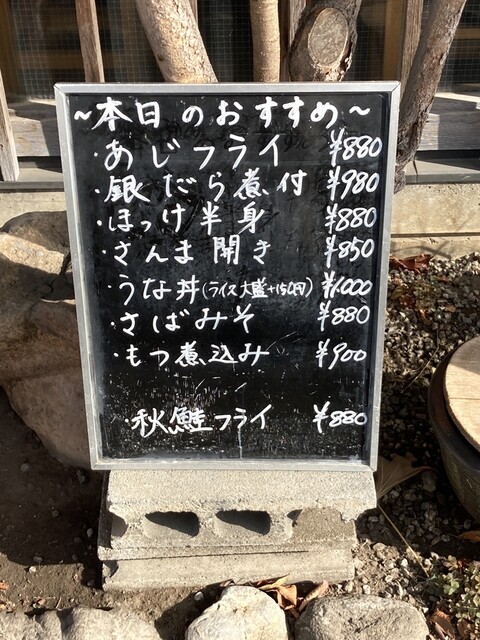 ~本日のおすすめ~
・あじフライ ¥880
・銀だら煮付 ¥980
・ほっけ半身 ¥880
・さんま開き ¥850
・うな丼(ライス大盛+150円) ¥1.000
・さばみそ ¥880
・もつ煮込み ¥900
秋鮭フライ ¥880